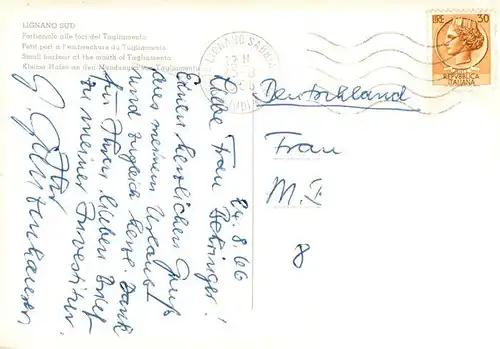 LIGNANO SUD
Porticciolo alle foci del Tagliamento
Petit port a l'embouchure du Tagliamento
Small harbour at the mouth of Tagliamento
Kleine Hafen an den Mündungen des Tagliamento
LIGNANO SABBIA
LIRE 30
REPUBBLICA
ITALIANA
24.8.66
Liebe Frau Behringer!
Einen herzlichen Gruß
aus meinem Urlaub
und zugleich herzl. Dank
für Ihren lieben Brief
zu meiner Investitur.
Ihr
G.
Deutschland
Frau
M. I.
8